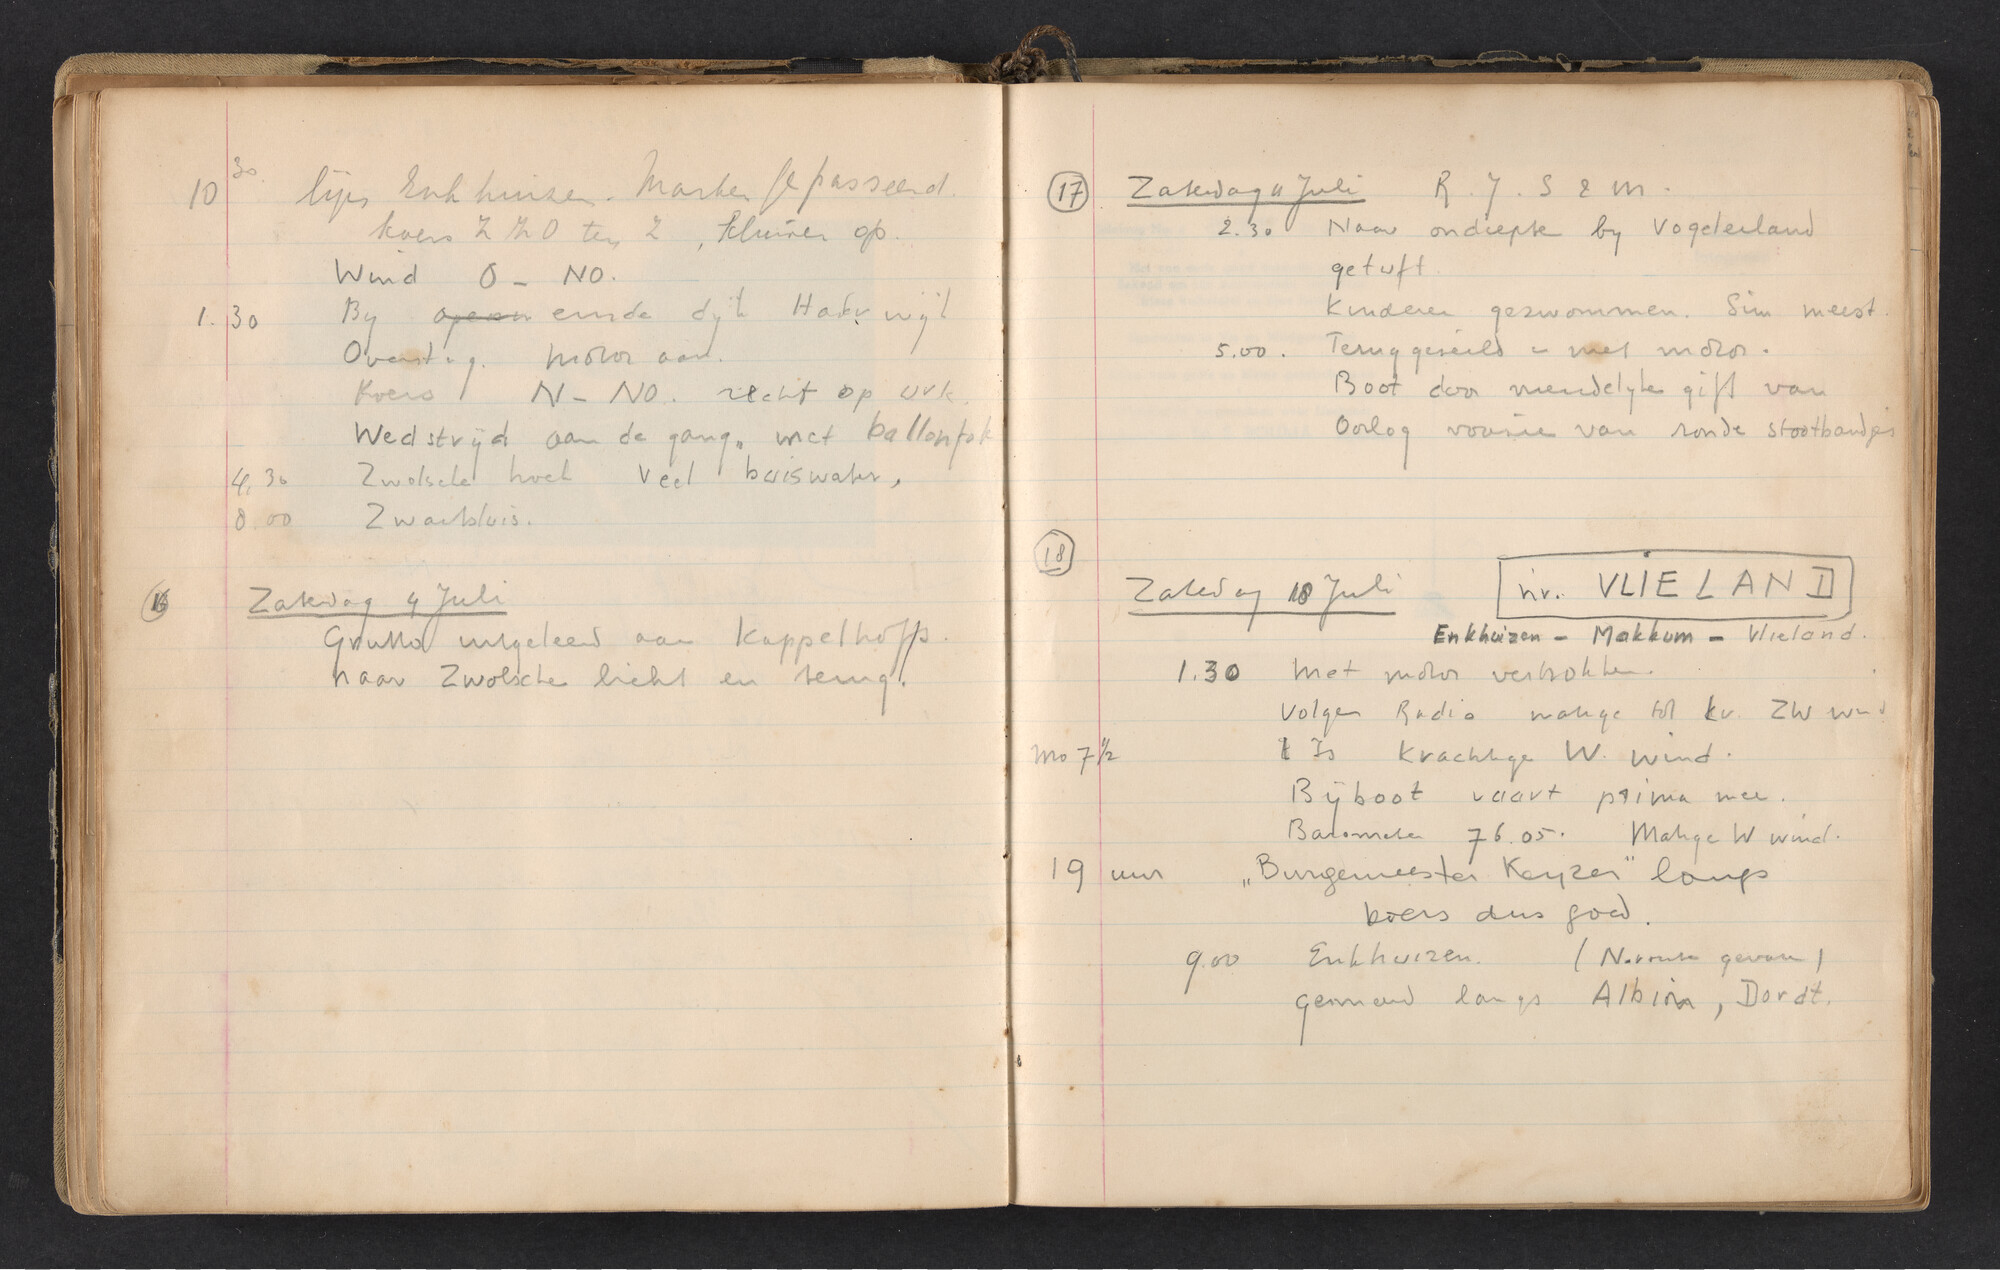 10 30 lijn Enkhuizen. Marken gepasseerd.
koers Z ZO ten Z, kluiver op.
Wind O - NO.
1.30 By einde dyk Harderwijk
Overstag. motor aan.
Koers N - NO. recht op Urk.
Wedstrijd aan de gang, met ballonfok
4.30 Zwolsche hoek veel buiswater,
8.00 Zwartsluis.
16
Zaterdag 4 Juli
Grutto uitgeleend aan Kappelhoffs.
naar Zwolsche licht en terug.
17 Zaterdag 11 Juli R. J. S & M.
2.30 Naar ondiepte by Vogeleiland
getuft
Kinderen gezwommen. Sim meest.
5.00. Terug gezeild - met motor.
Boot door vriendelyke gift van
Oorlog voorzien van ronde stootbandjes
18
Zaterdag 18 Juli nr. VLIELAND
Enkhuizen - Makkum - Vlieland.
1.30 Met motor vertrokken.
Volgen Radio matige tot kr. ZW wind
Mo 7 1/2 Is Krachtige W. wind.
Bijboot vaart prima mee.
Barometer 76.05. Matige W wind.
19 uur „Burgemeester Keyzer" langs
koers dus goed.
9.00 Enkhuizen. (N. route gevaren)
gemeerd langs Albion, Dordt.